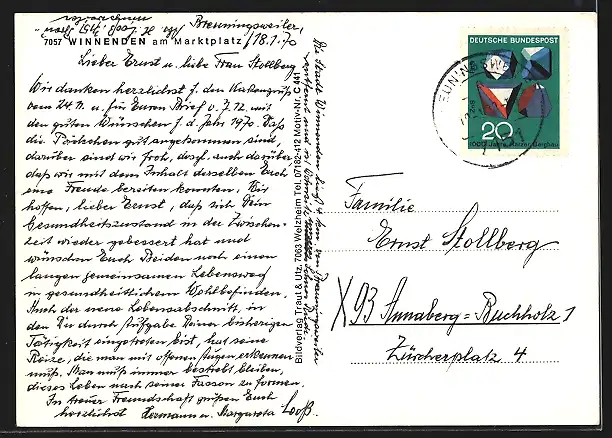 Breuningsweiler,
7057 WINNENDEN am Marktplatz
18.1.70
Lieber Ernst u. liebe Frau Stollberg
Wir danken herzlichst f. den Kartengruß
vom 24.11. u. für Euren Brief v. 7.12. mit
den guten Wünschen f. d. Jahr 1970. Daß
die Päckchen gut angekommen sind,
darüber sind wir froh, desgl. auch darüber,
daß wir mit dem Inhalt desselben Euch
eine Freude bereiten konnten. Wir
hoffen, lieber Ernst, daß sich Dein
Gesundheitszustand in der Zwischen-
zeit wieder gebessert hat und
wünschen Euch Beiden noch einen
langen gemeinsamen Lebensweg
in gesundheitlichem Wohlbefinden.
Auch der neue Lebensabschnitt, in
den Du durch Aufgabe Deiner bisherigen
Tätigkeit eingetreten bist, hat seine
Reize, die man mit offenen Augen erkennen
muß. Man muß immer bestrebt bleiben,
dieses Leben nach seiner Fasson zu formen.
In treuer Freundschaft grüßen Euch
herzlichst Hermann u. Margarete Looß.
Bildverlag Traut & Utz, 7063 Welzheim Tel. 07182-412 Motiv-Nr. C 441
Die Stadt Winnenden liegt 4 km von Breuningsweiler
DEUTSCHE BUNDESPOST
20
1000 Jahre Harzer Bergbau
Familie
Ernst Stollberg
X 93 Annaberg-Buchholz 1
Zürcherplatz 4